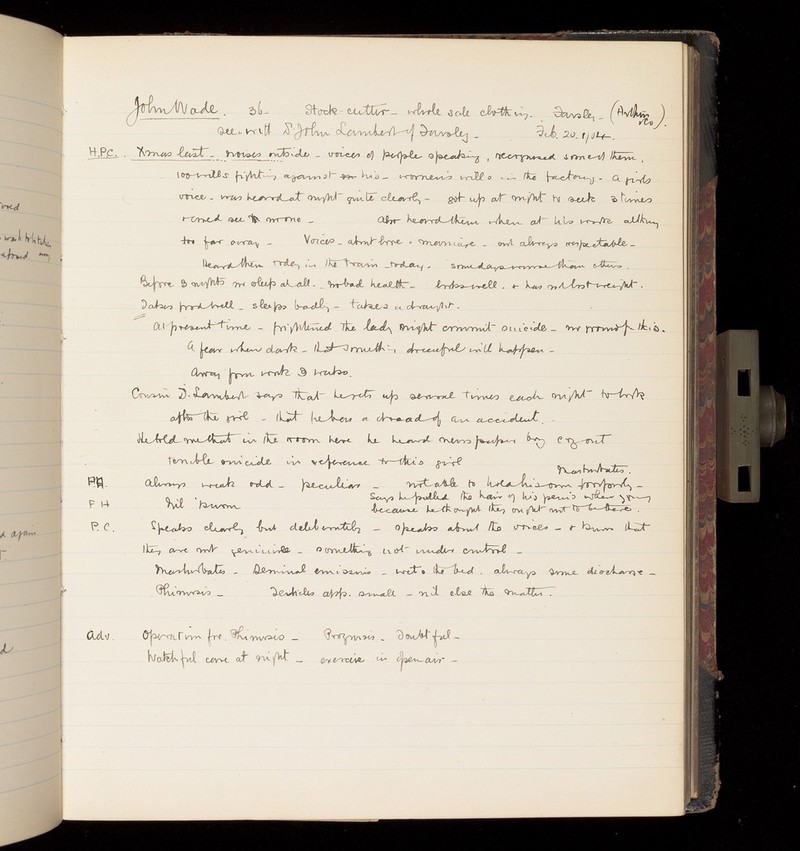 John Wade. 36- Stock-cutter - whole sale clothing. Farsley - (
seen with Dr John Lambert of Farsley - Feb. 20. 1904.
H.P.C. Xmas last - noises outside - voices of people speaking, recognised some of them.
100 wills fighting against his - women's wills - in the factory. A girls
voice - was heard at night quite clearly - got up at night to seek 3 times
could see no one - Also heard them when at his work altho
too far away - Voices - about love & marriage - not always respectable -
Heard them today in the train today. some days worse than others.
Before 3 nights no sleep at all. no bad health - looks well. & has not lost weight.
Takes food well - sleeps badly - takes a draught.
At present time - frightened the lady might commit suicide - no proof of this.
A fear when dark - that something dreadful will happen -
Away from work 3 weeks.
Cousin Dr. Lambert says that he gets up several times each night to look
after the girl - that he has a dread of an accident.
He told me that in the room here he heard newspaper boy cry out
terrible suicide in reference to this girl
Masturbates.
P.H. Always weak odd - peculiar - not able to hold his own properly -
Says he pulled the hair of his penis when young
F H Nil known because he thought they ought not to be there.
P.C. Speaks clearly but deliberately - speaks about the voices - & knows that
they are not genuine - something not under control -
Masturbates - Seminal emissions - wets the bed. always some discharge -
Phimosis - Testicles app. small - nil else the matter.
Adv. Operation for Phimosis - Prognosis - Doubtful -
Watchful care at night - exercise in open air -